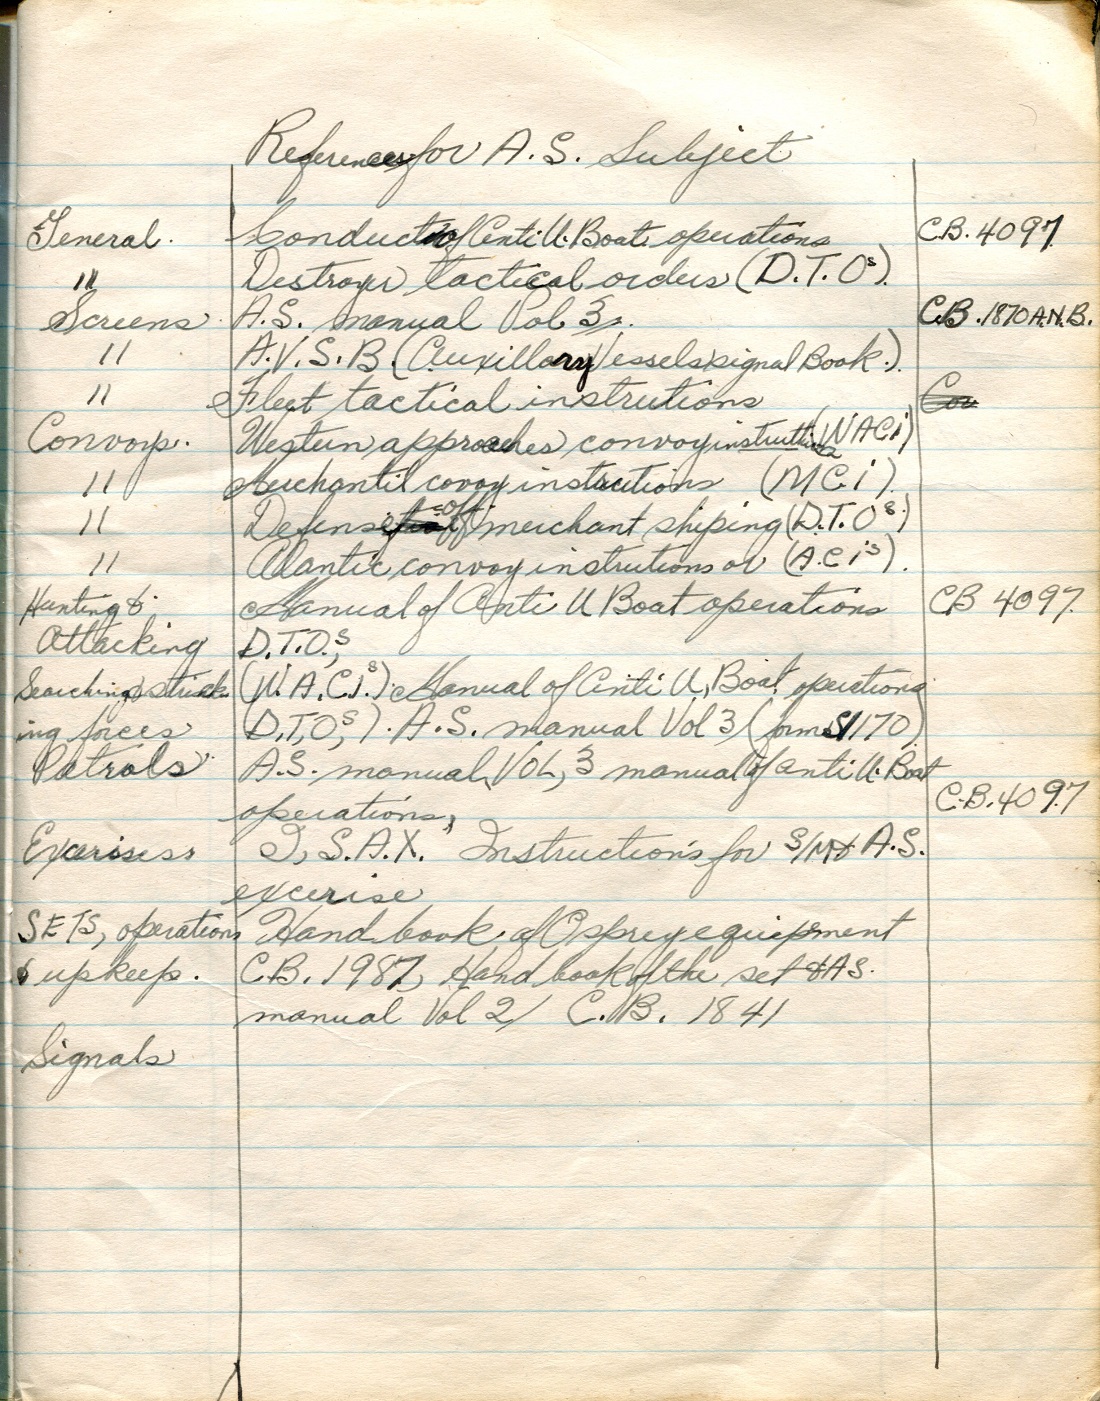 References for A.S. Subject
General. Conduct of Anti U-Boat operations C.B. 4097.
" Destroyer tactical orders (D.T.Os).
Screens. A.S. manual Vol 3. C.B. 1870 A.N.B.
" A.V.S.B. (Auxillary Vessels signal Book.)
" Fleet tactical instrutions
Convoys. Western approaches convoy (WACi)
" convoy instructions (MCi).
" Defense of merchant shiping (D.T.Os)
" Alantic convoy instrutions or (A.C.i's).
Hunting & Manual of Anti U Boat operations CB 4097.
Attacking D.T.O,s
Searching & strick (W.A.C.I.s) Manual of Anti U, Boat operations
ing forces (D,T,O,s). A.S. manual Vol 3, (form S1170)
Patrols. A.S. manual, VOL, 3 manual of anti U-Boat
operations, C.B. 4097
Excerisess I, S.A.X. Instructions for S/M & A.S.
excerise
SETS, operations Hand book of Osprey equipment
& upkeep. C.B. 1987, Hand book of the set & AS.
manual Vol 2/ C.B. 1841
Signals